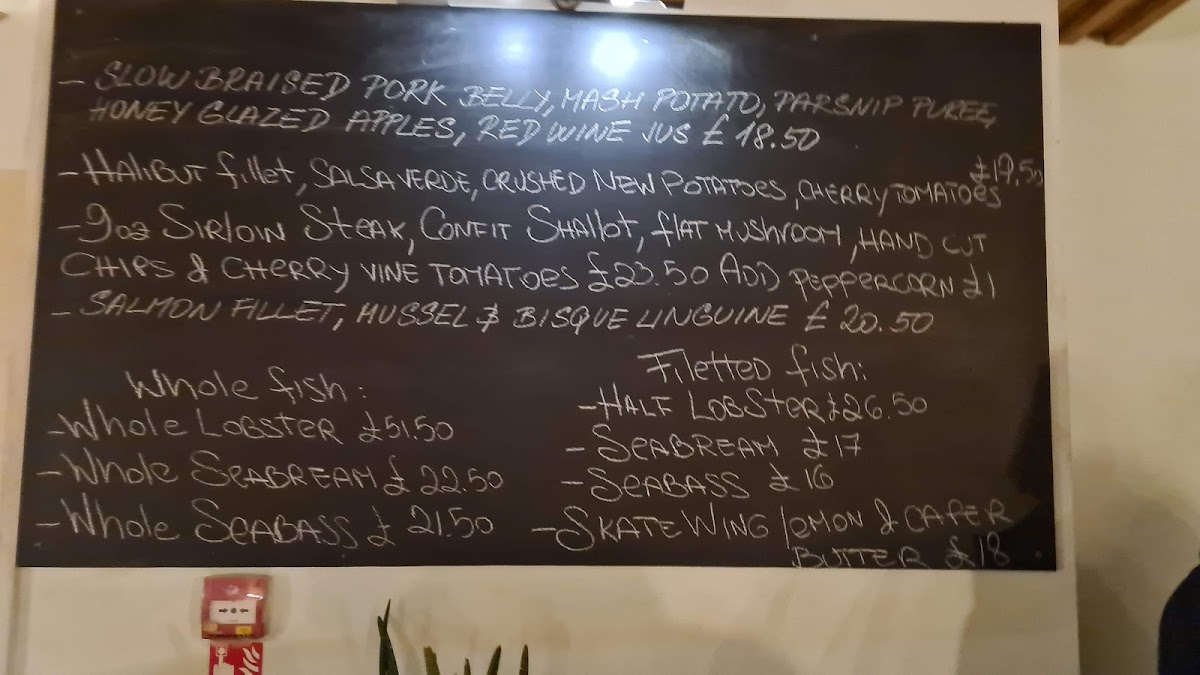 - SLOW BRAISED PORK BELLY, MASH POTATO, PARSNIP PUREE,
HONEY GLAZED APPLES, RED WINE JUS £ 18.50
- HALIBUT fillet, SALSA VERDE, CRUSHED NEW POTATOES, CHERRY TOMATOES £17,50
- 9oz SIRLOIN STEAK, CONFIT SHALLOT, flAT MUSHROOM, HAND CUT
CHIPS & CHERRY VINE TOMATOES £23.50 ADD PEPPERCORN £1
- SALMON FILLET, MUSSEL & BISQUE LINGUINE £ 20.50
Whole fish:
- Whole LOBSTER £51.50
- Whole SEABREAM £ 22.50
- Whole SEABASS £ 21.50
Filetted fish:
- HALF LOBSTER £26.50
- SEABREAM £17
- SEABASS £16
- SKATE WING lemon & CAPER
BUTTER £18